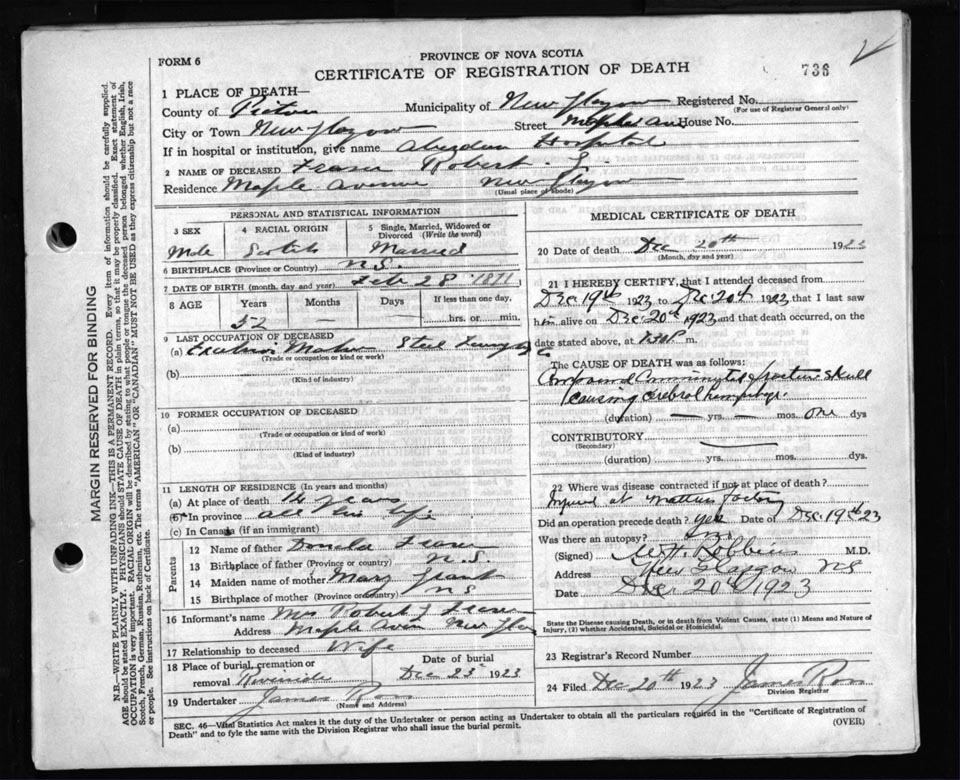 PROVINCE OF NOVA SCOTIA
FORM 6
CERTIFICATE OF REGISTRATION OF DEATH
736
1 PLACE OF DEATH—
County of Pictou Municipality of New Glasgow Registered No.
(For use of Registrar General only)
City or Town New Glasgow Street Maple Ave House No.
If in hospital or institution, give name Aberdeen Hospital
2 NAME OF DECEASED Fraser Robert J.
Residence Maple Avenue New Glasgow
(Usual place of abode)
PERSONAL AND STATISTICAL INFORMATION
3 SEX
Male
4 RACIAL ORIGIN
Scotch
5 Single, Married, Widowed or Divorced (Write the word)
Married
6 BIRTHPLACE (Province or Country) N.S.
7 DATE OF BIRTH (month, day and year) Feb 28 1871
8 AGE Years Months Days If less than one day,
52 — — hrs. or min.
9 LAST OCCUPATION OF DECEASED
(a) Maker Steel
(Trade or occupation or kind or work)
(b)
(Kind of industry)
10 FORMER OCCUPATION OF DECEASED
(a)
(Trade or occupation or kind of work)
(b)
(Kind of industry)
11 LENGTH OF RESIDENCE (In years and months)
(a) At place of death 14 years
(b) In province all his life
(c) In Canada (if an immigrant)
Parents
12 Name of father Donald Fraser
13 Birthplace of father (Province or country) N.S.
14 Maiden name of mother Mary Grant
15 Birthplace of mother (Province or country) NS
16 Informant's name Mrs Robert J Fraser
Address Maple Aven New Glas
17 Relationship to deceased Wife
18 Place of burial, cremation or removal Riverside
Date of burial Dec 23 1923
19 Undertaker James Ross
(Name and Address)
MEDICAL CERTIFICATE OF DEATH
20 Date of death Dec 20th 1923
(Month, day and year)
21 I HEREBY CERTIFY, that I attended deceased from
Dec 19th 1923 to Dec 20th 1923 that I last saw
him alive on Dec 20th 1923 and that death occurred, on
date stated above, at m.
The CAUSE OF DEATH was as follows:
Compound Comminuted fracture skull
causing cerebral hemorrhage.
(duration) — yrs. — mos. one dys
CONTRIBUTORY
(Secondary)
(duration) yrs. mos. dys.
22 Where was disease contracted if not at place of death?
Injured at factory
Did an operation precede death? yes Date of Dec. 19th 23
Was there an autopsy? no
(Signed) M.D.
Address New Glasgow NS
Date Dec 20th 1923
State the Disease causing Death, or in death from Violent Causes, state (1) Means and Nature of Injury, (2) whether Accidental, Suicidal or Homicidal.
23 Registrar's Record Number
24 Filed Dec 20th 1923 James Ross
Division Registrar
SEC. 46—Vital Statistics Act makes it the duty of the Undertaker or person acting as Undertaker to obtain all the particulars required in the "Certificate of Registration of
Death" and to fyle the same with the Division Registrar who shall issue the burial permit.
(OVER)
MARGIN RESERVED FOR BINDING
N.B.—WRITE PLAINLY WITH UNFADING INK—THIS IS A PERMANENT RECORD. Every item of information should be carefully supplied.
AGE should be stated EXACTLY. PHYSICIANS should STATE CAUSE OF DEATH in plain terms, so that it may be properly classified. Exact statement of
OCCUPATION is very important. RACIAL ORIGIN will be described by stating to what people or tongue the deceased person belonged whether English, Irish,
Scotch, French, German, Russian, Ruthenian, etc. The terms "AMERICAN" OR "CANADIAN" MUST NOT BE USED as they express citizenship but not a race
or people. See instructions on back of Certificate.